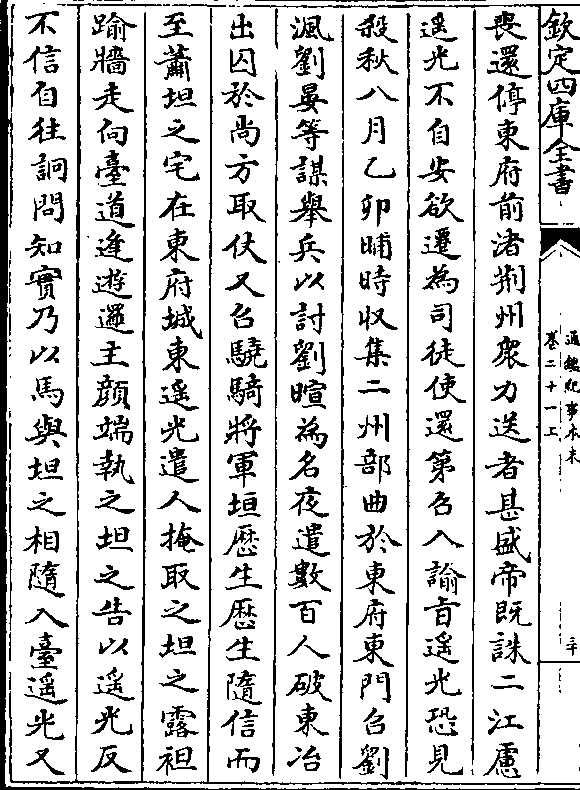 欽定四庫全書
通鑑紀事本末
卷二十一上
三十
喪還停東府前渚荆州衆力送者甚盛帝既誅二江慮
遥光不自安欲遷為司徒使還第召入諭旨遥光恐見
殺秋八月乙卯晡時收集二州部曲於東府東門召劉
渢劉晏等謀舉兵以討劉暄為名夜遣數百人破東冶
出囚於尚方取仗又召驍騎將軍垣歴生歴生隨信而
至蕭坦之宅在東府城東遥光遣人掩取之坦之露袒
踰牆走向臺道逢遊邏主顔端執之坦之告以遥光反
不信自往詗問知實乃以馬與坦之相隨入臺遥光又